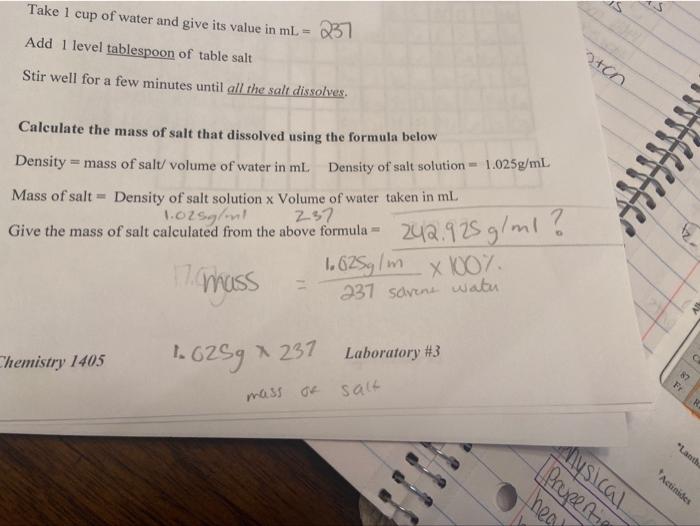 Take 1 cup of water and give its value in mL = 237
Add 1 level tablespoon of table salt
Stir well for a few minutes until all the salt dissolves.
Calculate the mass of salt that dissolved using the formula below
Density = mass of salt/ volume of water in mL Density of salt solution = 1.025g/mL
Mass of salt = Density of salt solution x Volume of water taken in mL
1.025g/ml 237
Give the mass of salt calculated from the above formula = 242.925 g/ml ?
mass = 1.025g/m x 100%.
237 water
1.025g x 237 Laboratory #3
Chemistry 1405
mass of salt
physical
87
Fr
*Lanth
*Actinides